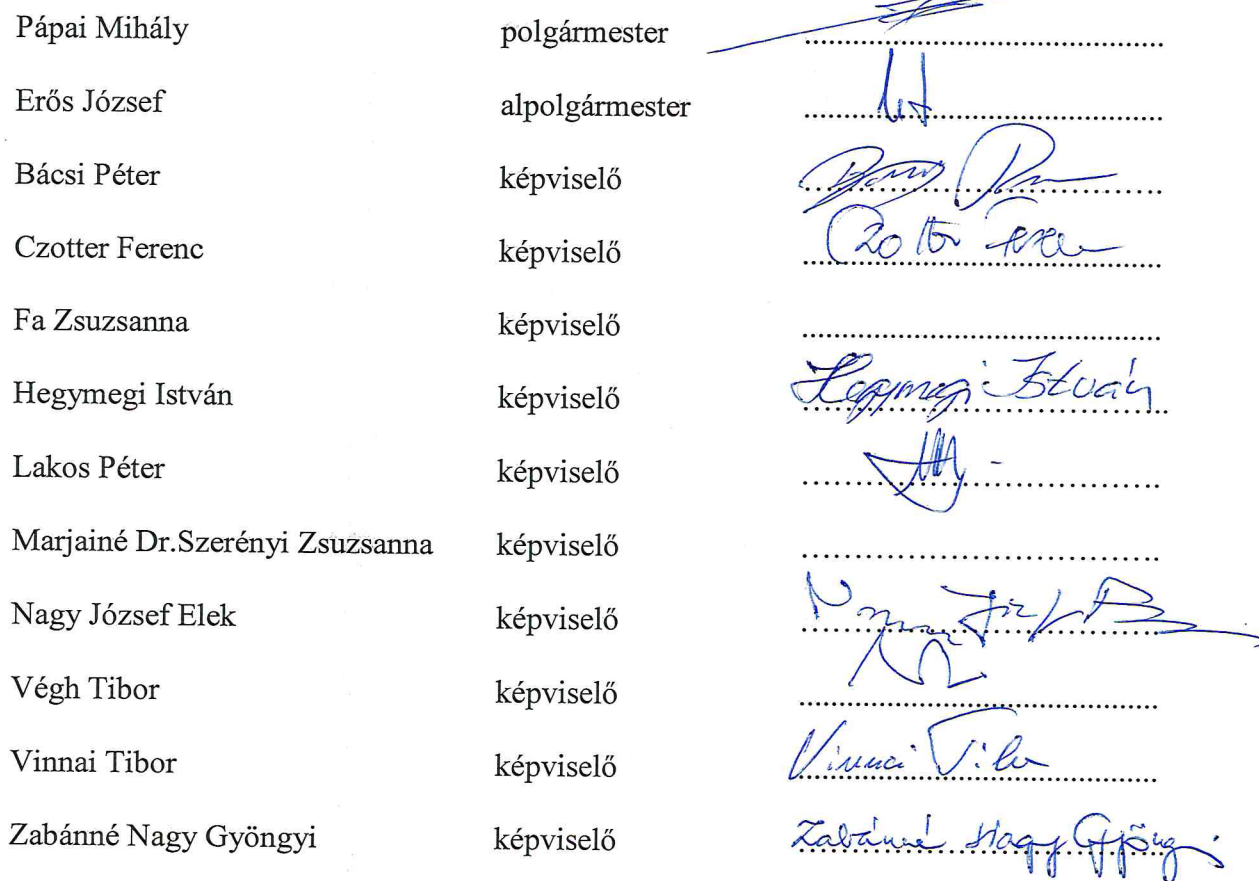 Pápai Mihály polgármester ..........
Erős József alpolgármester ..........
Bácsi Péter képviselő ..........
Czotter Ferenc képviselő .......... Czotter Ferenc
Fa Zsuzsanna képviselő ..........
Hegymegi István képviselő .......... Hegymegi István
Lakos Péter képviselő ..........
Marjainé Dr.Szerényi Zsuzsanna képviselő ..........
Nagy József Elek képviselő ..........
Végh Tibor képviselő ..........
Vinnai Tibor képviselő .......... Vinnai Tibor
Zabánné Nagy Gyöngyi képviselő .......... Zabánné Nagy Gyöngyi